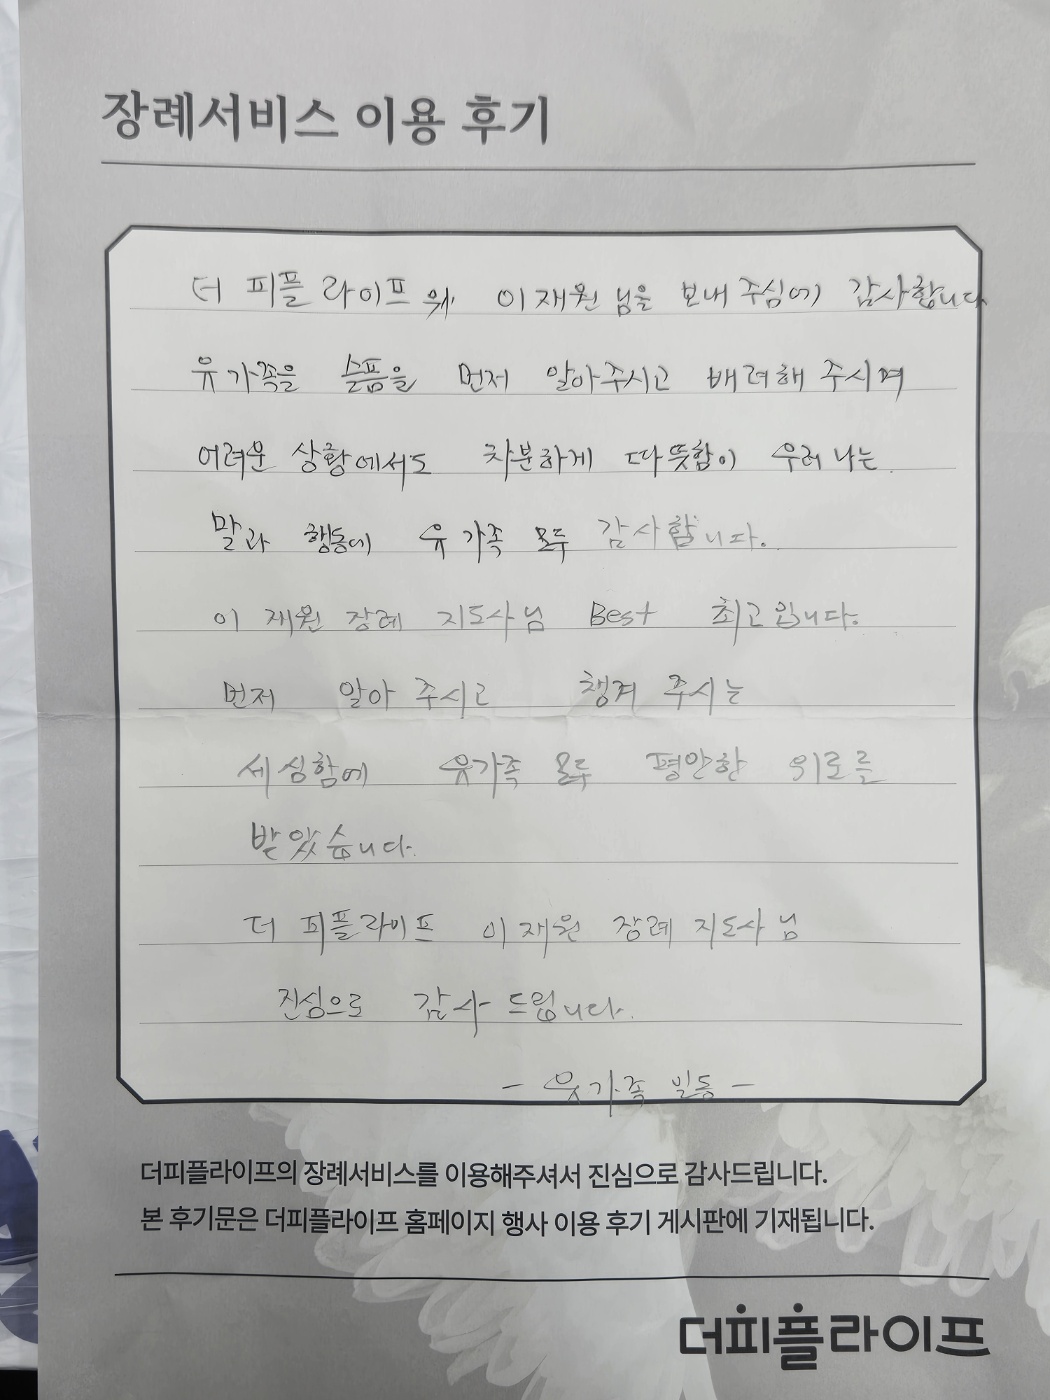 장례서비스 이용 후기
더 피플 라이프 이재원 님을 보내 주심에 감사합니다
유가족을 슬픔을 먼저 알아주시고 배려해 주시며
어려운 상황에서도 차분하게 따뜻함이 우러나는
말과 행동에 유가족 모두 감사합니다.
이재원 장례 지도사님 Best 최고입니다.
먼저 알아 주시고 챙겨 주시는
세심함에 유가족 모두 평안한 위로를
받았습니다.
더 피플라이프 이재원 장례 지도사님
진심으로 감사 드립니다.
- 유가족 일동 -
더피플라이프의 장례서비스를 이용해주셔서 진심으로 감사드립니다.
본 후기문은 더피플라이프 홈페이지 행사 이용 후기 게시판에 기재됩니다.
더피플라이프